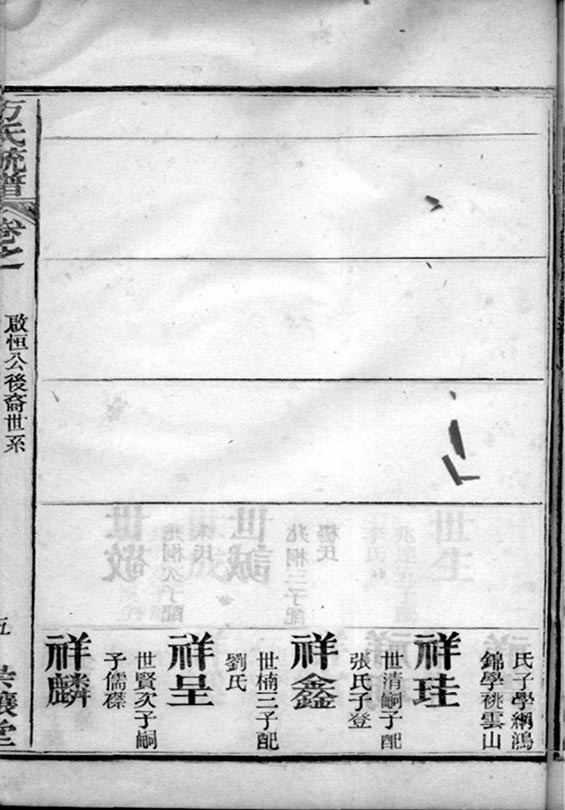 氏子學網鴻
錦學祧雲山
祥珪
世清嗣子配
張氏子登
祥鑫
世楠三子配
劉氏
祥呈
世賢次子嗣
子儒傑
祥麟
方氏統譜
卷之一
啟恒公後裔世系
五